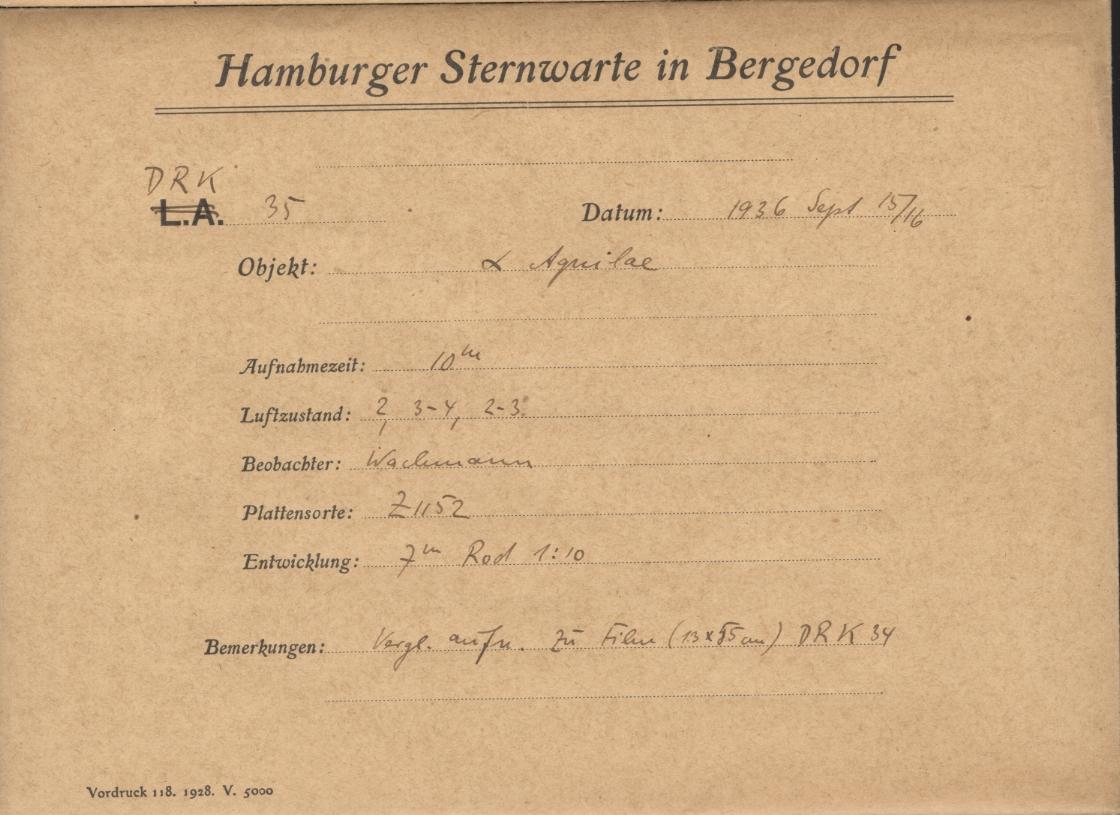 Hamburger Sternwarte in Bergedorf
DRK
L.A. 35
Datum: 1936 Sept 15/16
Objekt: α Aquilae
Aufnahmezeit: 10m
Luftzustand: 2, 3-4, 2-3
Beobachter: Wachmann
Plattensorte: Z1152
Entwicklung: 7m Rod 1:10
Bemerkungen: Vergl. aufn. zu Film (13x cm) DRK 34
Vordruck 118. 1928. V. 5000